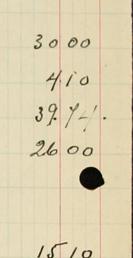 30 00
4 10
39.74.
26 00
15 10